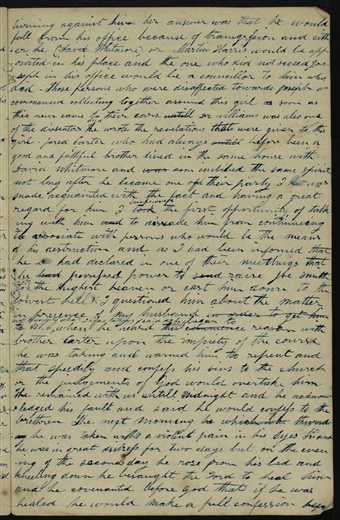 burning against him her answer was that he would
fall from his office because of transgression and eith
er he (David Whitmer) or Martin Harris would be app
ointed in his place and the one who did not succeed Jo
seph in his office would be a councellor to him who
did Those persons who were disaffected towards Joseph
commenced collecting together around this girl as soon as
this news came to their ears Dr williams was also one
of the dissenters he wrote the revelations that were given to this
girl Jared Carter who had always before been a
good and faithful brother lived in the same house with
David Whitmer and soon imbibed the same spirit
not long after he became one of their party I was
made acquainted with the fact and having a great
regard for him I took the first opportunity of talk
ing with him to dissuade him from continueing
to associate with persons who would be the means
of his destruction and as I had been informed that
he had declared in one of their meetings that
he possessed power to raise Jo Smith
to the highest heaven or cast him down to the
lowest hell I questioned him about the matter
in presence of my husband
when he heard this reason with
brother carter upon the impurity of the course
he was taking and warned him to repent and
that speedily and confess his sins to the church
or the judgments of God would overtake him
He remained with us untill midnight and he acknow
ledged his fault and said he would confess to the
brethren The next morning he
he was taken with a violent pain in his eyes
he was in great distress for two days but on the even
ing of the second day he rose from his bed and
kneeling down he besought the Lord to heal him
and he covenanted before God that if he was
healed he would make a full confession